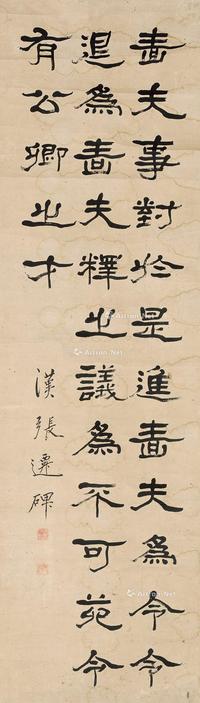 嗇夫事對於是進嗇夫為令令
退為嗇夫釋之議為不可苑令
有公卿之才
漢張遷碑
Artron.Net